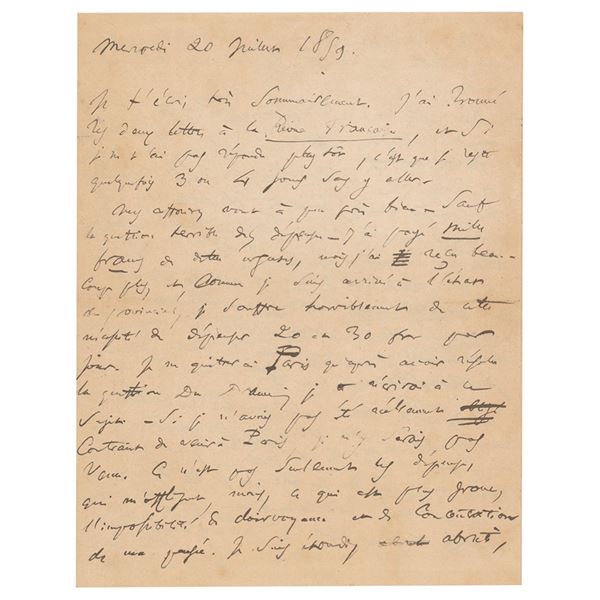 Mercredi 20 juillet 1859.
Je t'écris très sommairement. J'ai trouvé
tes deux lettres à la Revue Française, et si
je ne t'ai pas répondu plus tôt, c'est que je reste
quelquefois 3 ou 4 jours sans y aller.
Mes affaires vont à peu près bien – Sauf
la question terrible des dépenses – J'ai payé mille
francs de dettes urgentes, mais j'ai reçu beau-
coup plus, et, comme je suis arrivé à l'état
de provincial, je souffre horriblement de cette
nécessité de dépenser 20 ou 30 fr par
jour. Je ne quitterai Paris qu'après avoir réglé
la question Du je t'écrirai à ce
Sujet – Si je n'avais pas été réellement
contraint de venir à Paris je n'y serais pas
venu. Ce n'est pas seulement les dépenses,
qui m'affligent, mais, ce qui est plus grave,
l'impossibilité de clairvoyance et de Concentration
de ma pensée. Je suis étourdi, abruti,